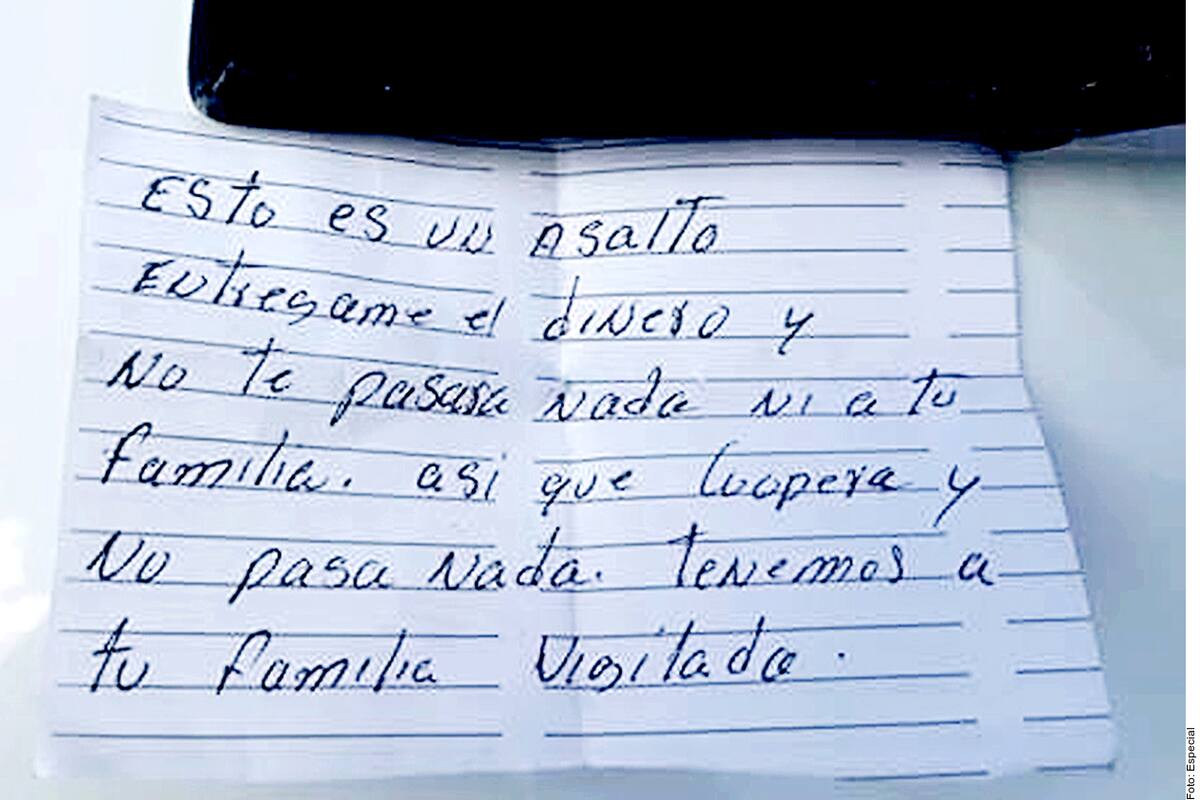 Esto es un Asalto
Entregame el dinero y
No te pasara nada ni a tu
familia. asi que Coopera y
No pasa nada. tenemos a
tu familia vigilada.
Foto: Especial